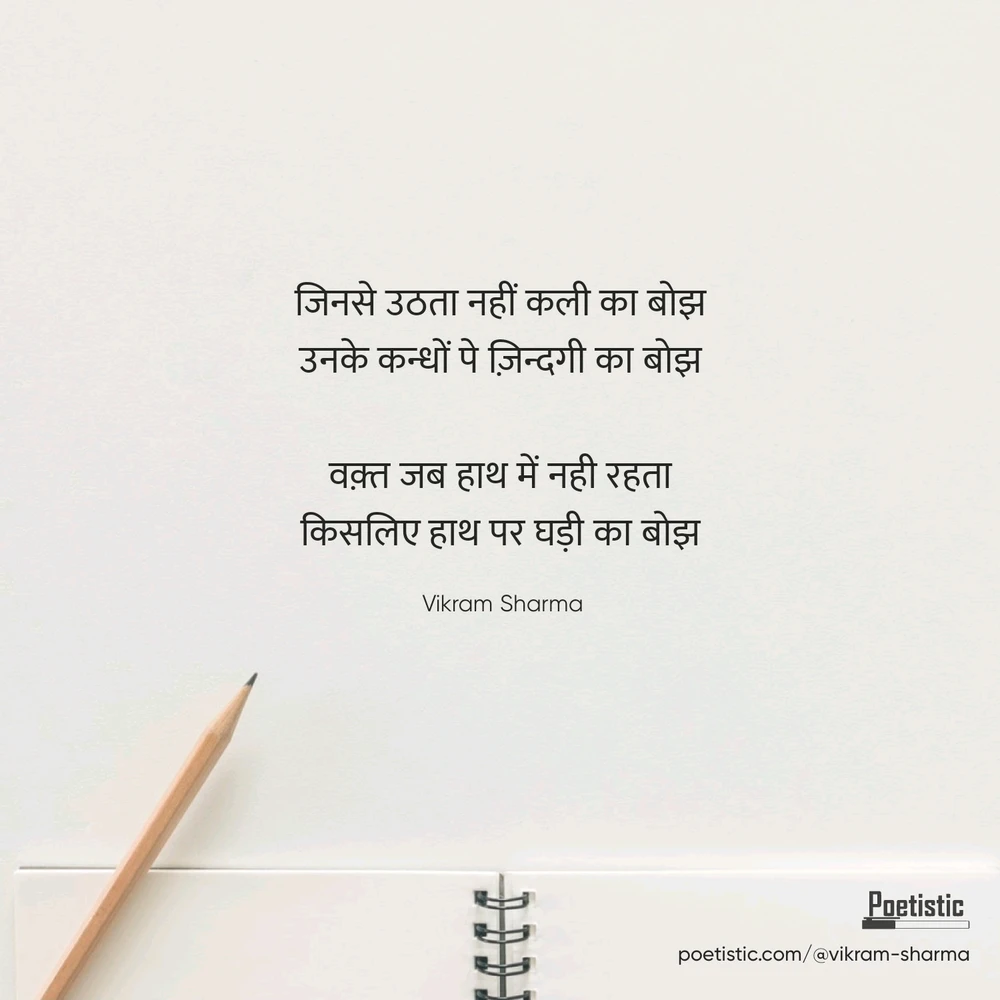 जिनसे उठता नहीं कली का बोझ
उनके कन्धों पे ज़िन्दगी का बोझ
वक़्त जब हाथ में नही रहता
किसलिए हाथ पर घड़ी का बोझ
Vikram Sharma
Poetistic
poetistic.com/@vikram-sharma